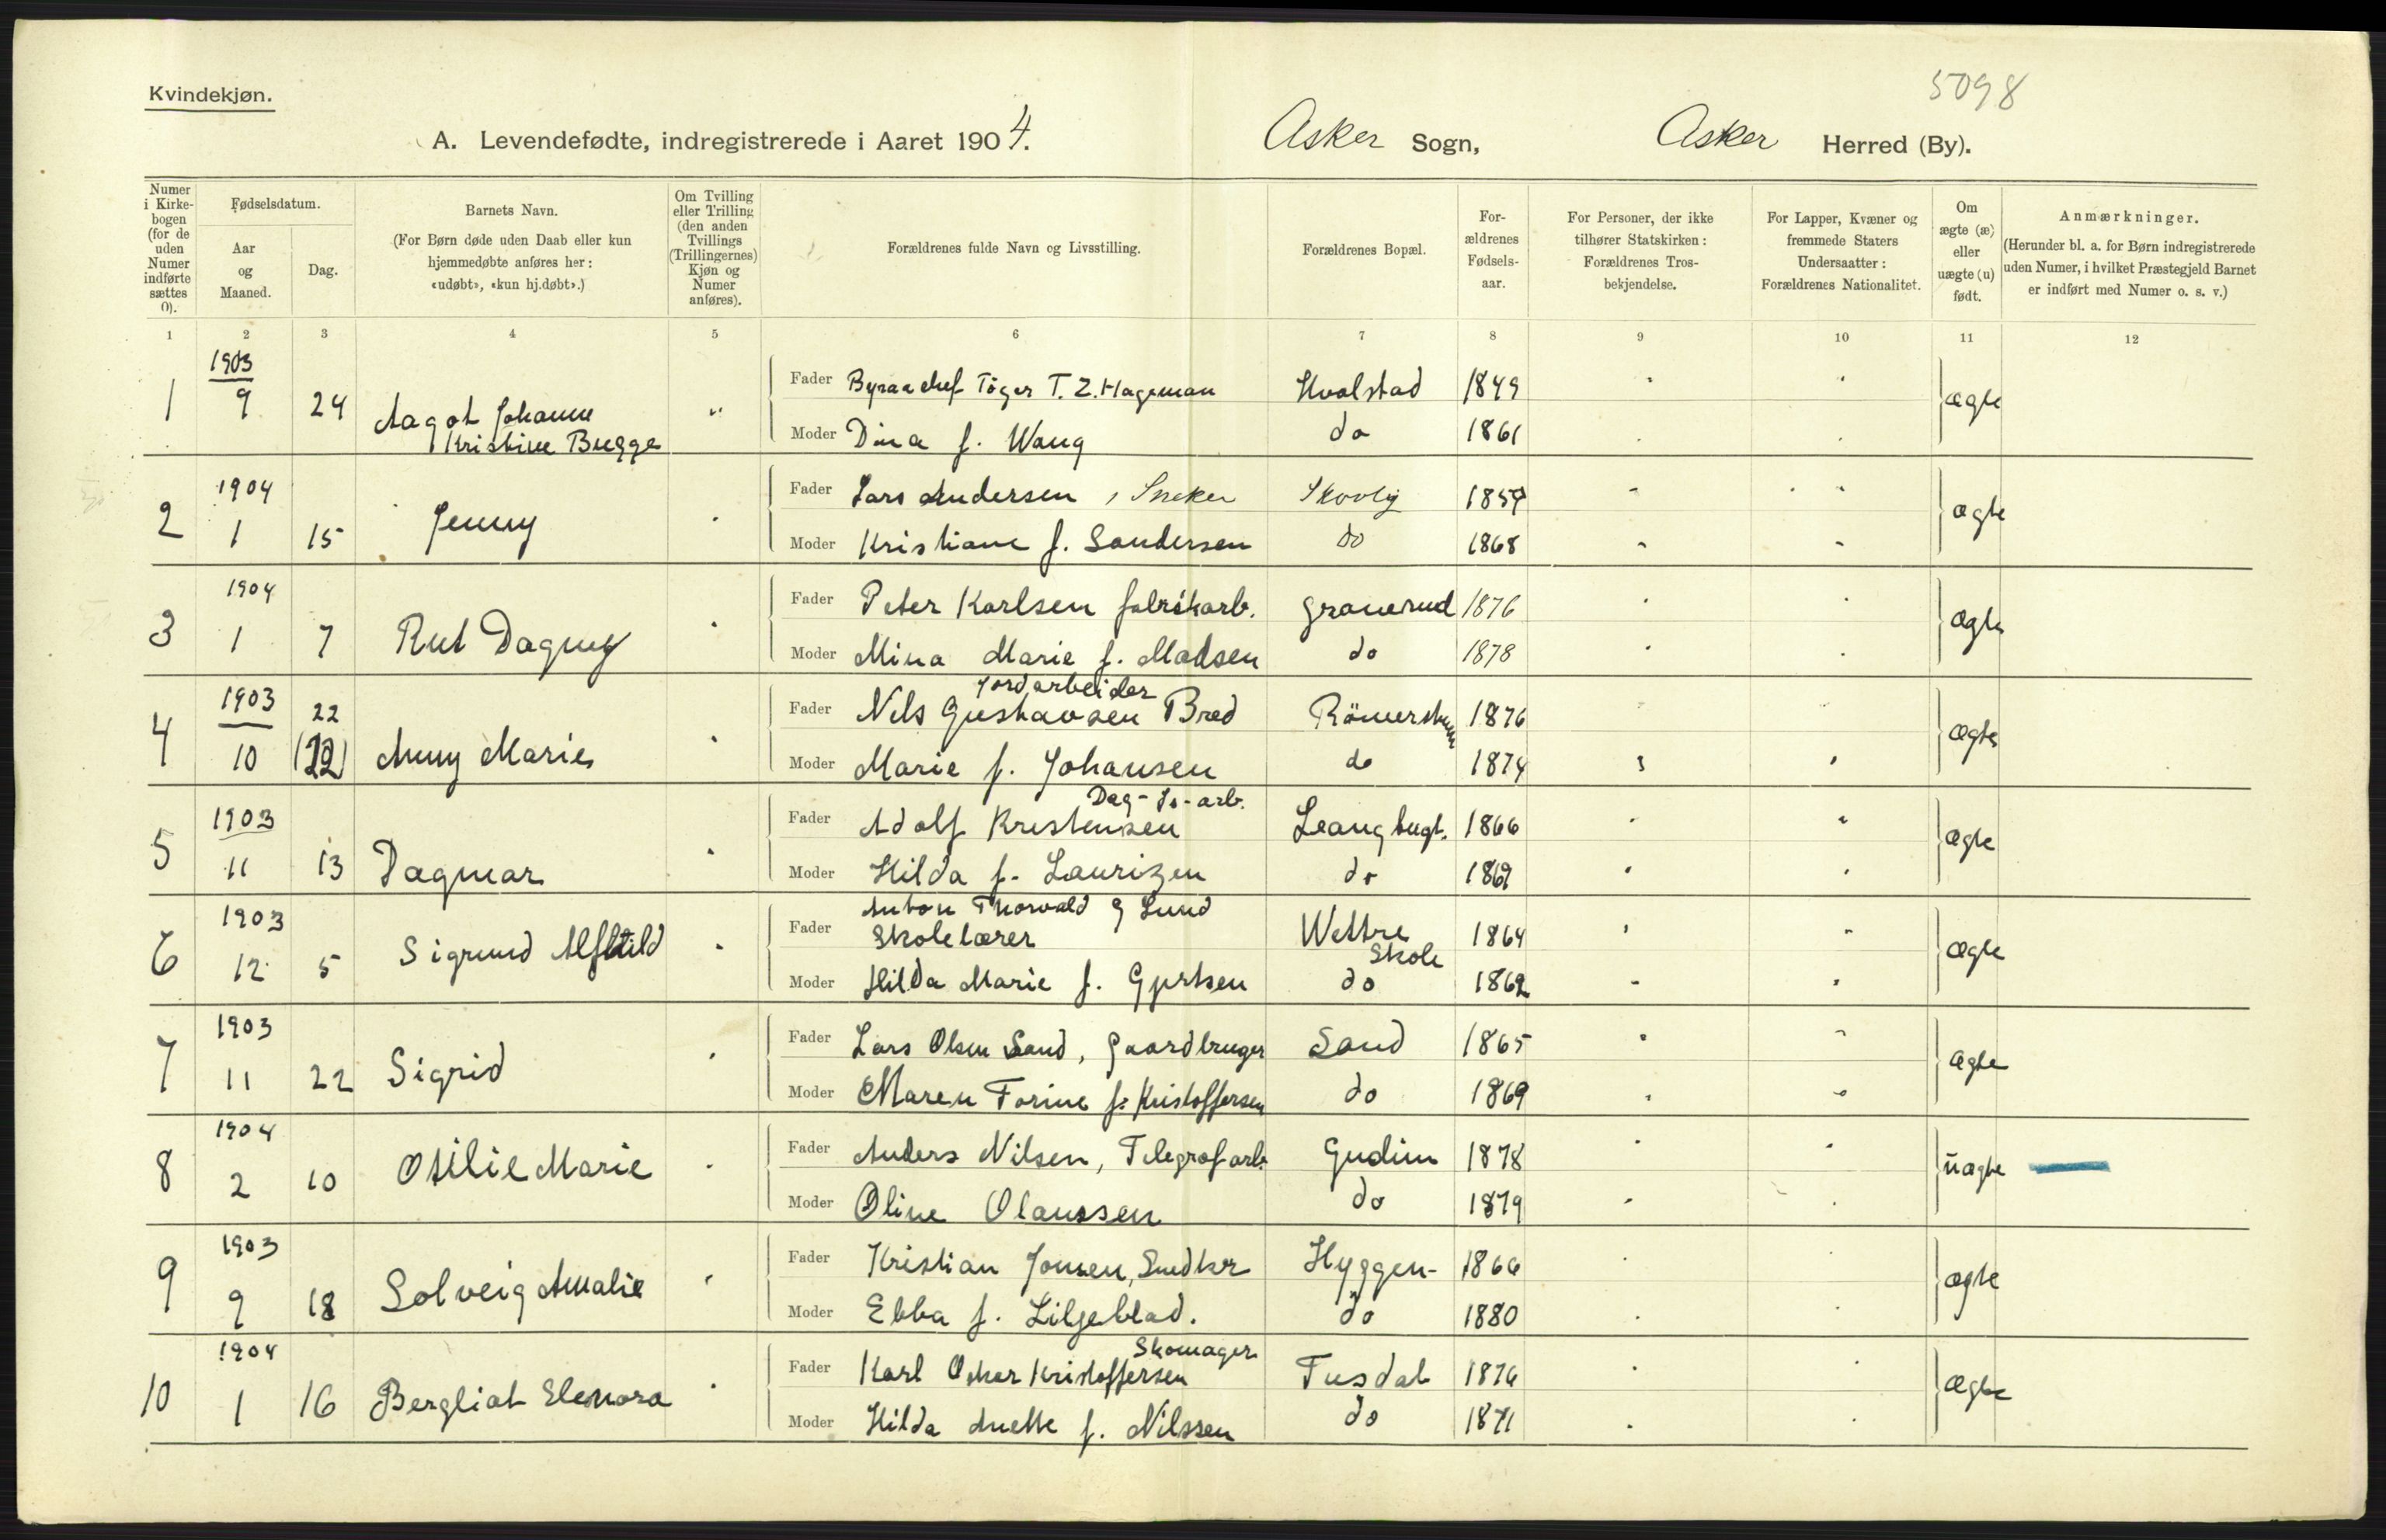 5098
Kvindekjøn.
A. Levendefødte, indregistrerede i Aaret 1904. Asker Sogn, Asker Herred (By).
Numer i Kirkebogen (for de uden Numer indførte sættes 0).
Fødselsdatum.
Aar og Maaned.
Dag.
Barnets Navn.
(For Børn døde uden Daab eller kun
hjemmedøbte anføres her:
«udøbt», «kun hj.døbt».)
Om Tvilling
eller Trilling
(den anden
Tvillings
(Trillingernes)
Kjøn og
Numer
anføres).
Forældrenes fulde Navn og Livsstilling.
Forældrenes Bopæl.
For-
ældrenes
Fødsels-
aar.
For Personer, der ikke
tilhører Statskirken:
Forældrenes Tros-
bekjendelse.
For Lapper, Kvæner og
fremmede Staters
Undersaatter:
Forældrenes Nationalitet.
Om
ægte (æ)
eller
uægte (u)
født.
Anmærkninger.
(Herunder bl. a. for Børn indregistrerede
uden Numer, i hvilket Præstegjeld Barnet
er indført med Numer o. s. v.)
1 2 3 4 5 6 7 8 9 10 11 12
1903
1 9 24 Aagot Johanne
Kristine Bugge
Fader Byraachef Töger T. Z. Hageman Hvalstad 1849 ægte
Moder Dina f. Wang do 1861
1904
2 1 15 Jenny
Fader Lars Andersen, Sneker Skovly 1859 ægte
Moder Kristiane f. Sandersen do 1868
1904
3 1 7 Rut Dagny
Fader Peter Karlsen fabrikarb. Granerud 1876 ægte
Moder Mina Marie f. Madsen do 1878
1903
4 10 22 (12) Anny Marie
Jordarbeider
Fader Nels Gustavsen Bred 1876 ægte
Moder Marie f. Johansen do 1874
1903
5 11 13 Dagmar
Dag- Is-arb.
Fader Adolf Kristensen Leangbugt. 1866 ægte
Moder Hilda f. Laurizen do 1869
1903
6 12 5 Sigrund Alfhild
Anton Thorvald G Lund
Fader Skolelærer Wettre Skole 1864 ægte
Moder Hilda Marie f. Gjertsen do 1862
1903
7 11 22 Sigrid
Fader Lars Olsen Sand, Gaardbruger Sand 1865 ægte
Moder Maren Torine f. Kristoffersen do 1869
1904
8 2 10 Otilie Marie
Fader Anders Nilsen, Telegrafarb. Gudim 1878 uægte
Moder Oline Olaussen do 1879
1903
9 9 18 Solveig Amalie
Fader Kristian Jonsen, Snedker Hyggen- 1866 ægte
Moder Ebba f. Liljeblad. do 1880
1904
10 1 16 Bergliot Elenora
Skomager
Fader Karl Oskar Kristoffersen Fusdal 1876 ægte
Moder Hilda Anette f. Nilssen do 1871